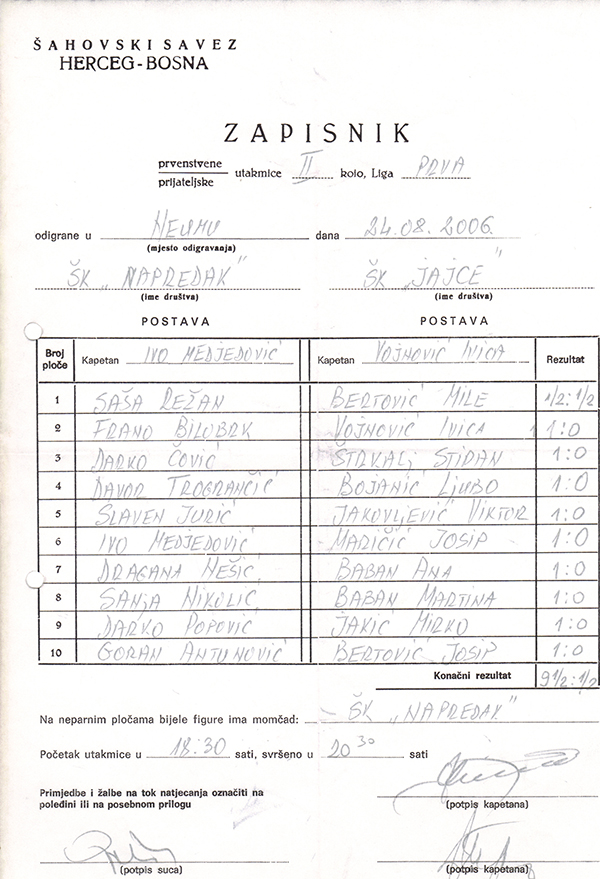 ŠAHOVSKI SAVEZ
HERCEG-BOSNA
ZAPISNIK
prvenstvene
prijateljske
utakmice II kolo, Liga PRVA
odigrane u NEUMU dana 24.08.2006.
(mjesto odigravanja)
ŠK "NAPREDAK" ŠK "JAJCE"
(ime društva) (ime društva)
POSTAVA POSTAVA
Broj ploče Kapetan IVO MEDJEDOVIĆ Kapetan VOJNOVIĆ IVICA Rezultat
1 SAŠA REŽAN BERTOVIĆ MILE 1/2:1/2
2 FRANO BILOBRK VOJNOVIĆ IVICA 1:0
3 DARKO ČOVIĆ ŠTRKALJ STIPAN 1:0
4 DAVOR TROGRANČIĆ BOJANIĆ LJUBO 1:0
5 SLAVEN JURIĆ JAKOVLJEVIĆ VIKTOR 1:0
6 IVO MEDJEDOVIĆ MARIČIĆ JOSIP 1:0
7 DRAGANA NEŠIĆ BABAN ANA 1:0
8 SANJA NIKOLIĆ BABAN MARTINA 1:0
9 DARKO POPOVIĆ JAKIĆ MIRKO 1:0
10 GORAN ANTUNOVIĆ BERTOVIĆ JOSIP 1:0
Konačni rezultat 9 1/2:1/2
Na neparnim pločama bijele figure ima momčad: ŠK "NAPREDAK"
Početak utakmice u 18:30 sati, svršeno u 20 30 sati
Primjedbe i žalbe na tok natjecanja označiti na
poleđini ili na posebnom prilogu
(potpis kapetana)
(potpis suca) (potpis kapetana)